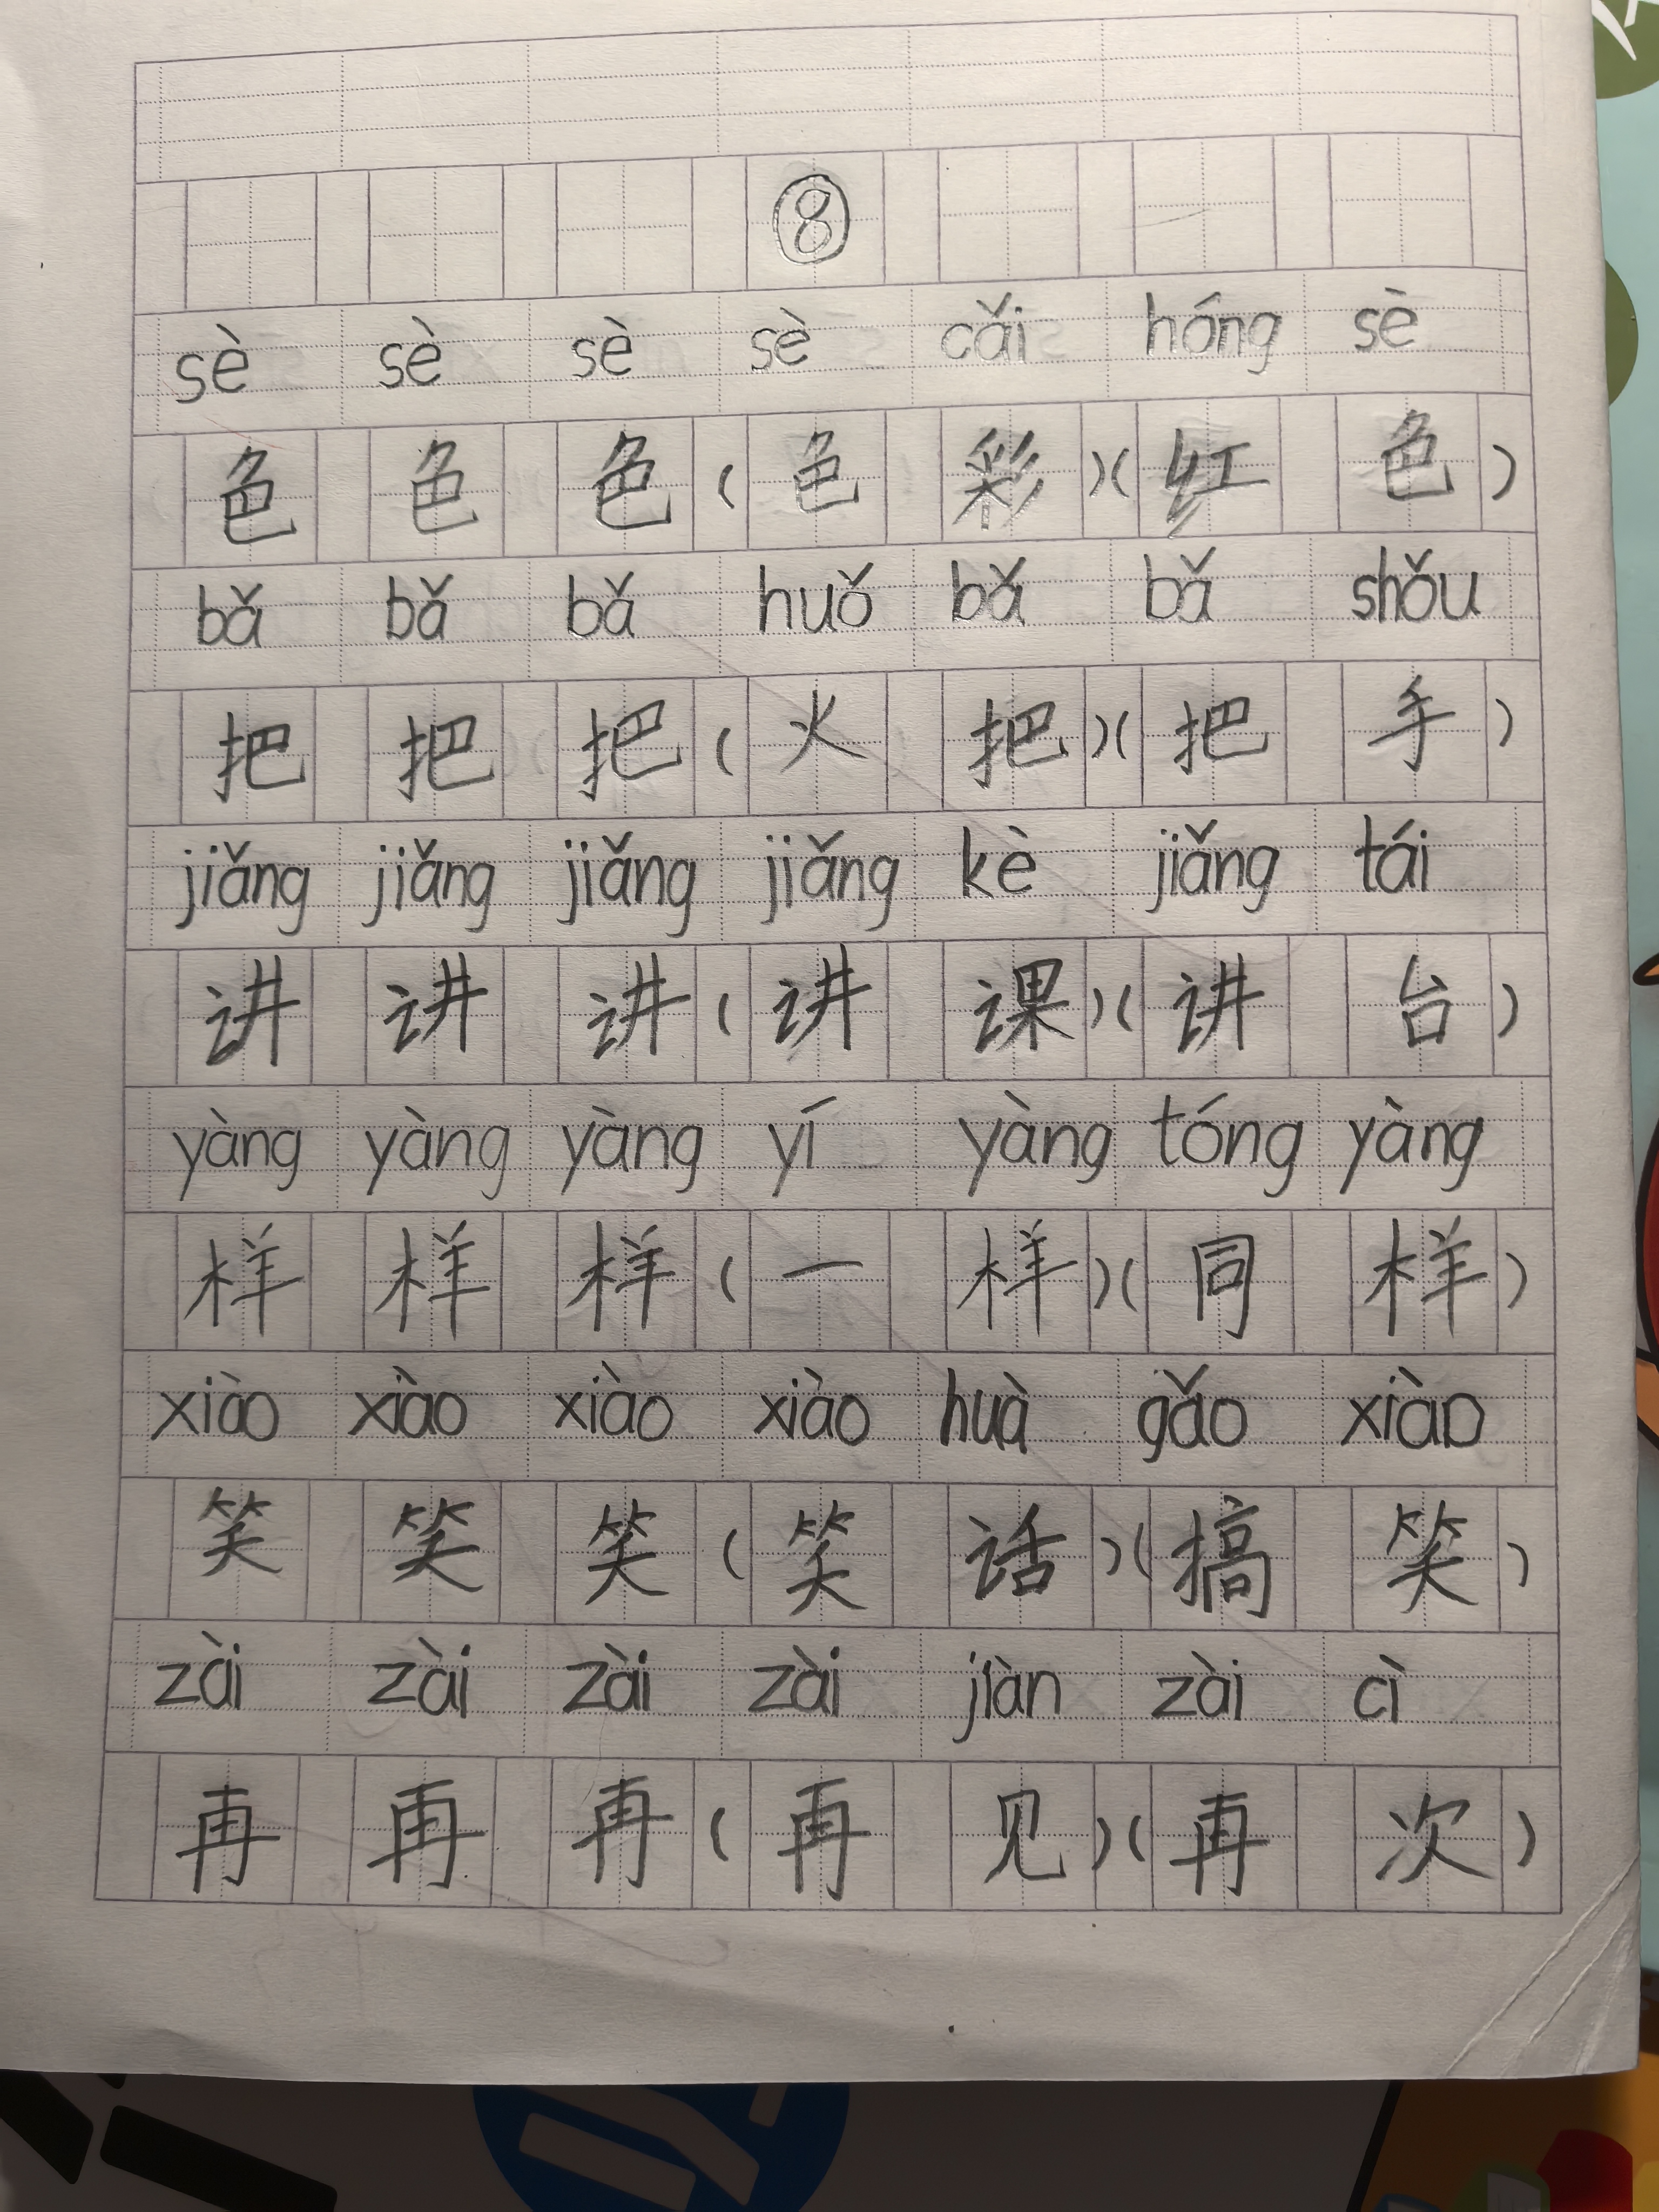 ⑧
sè sè sè sè cǎi hóng sè
色 色 色 ( 色 彩 )( 红 色 )
bǎ bǎ bǎ huǒ bǎ bǎ shǒu
把 把 把 ( 火 把 )( 把 手 )
jiǎng jiǎng jiǎng jiǎng kè jiǎng tái
讲 讲 讲 ( 讲 课 )( 讲 台 )
yàng yàng yàng yí yàng tóng yàng
样 样 样 ( 一 样 )( 同 样 )
xiào xiào xiào xiào huà gǎo xiào
笑 笑 笑 ( 笑 话 )( 搞 笑 )
zài zài zài zài jiàn zài cì
再 再 再 ( 再 见 )( 再 次 )